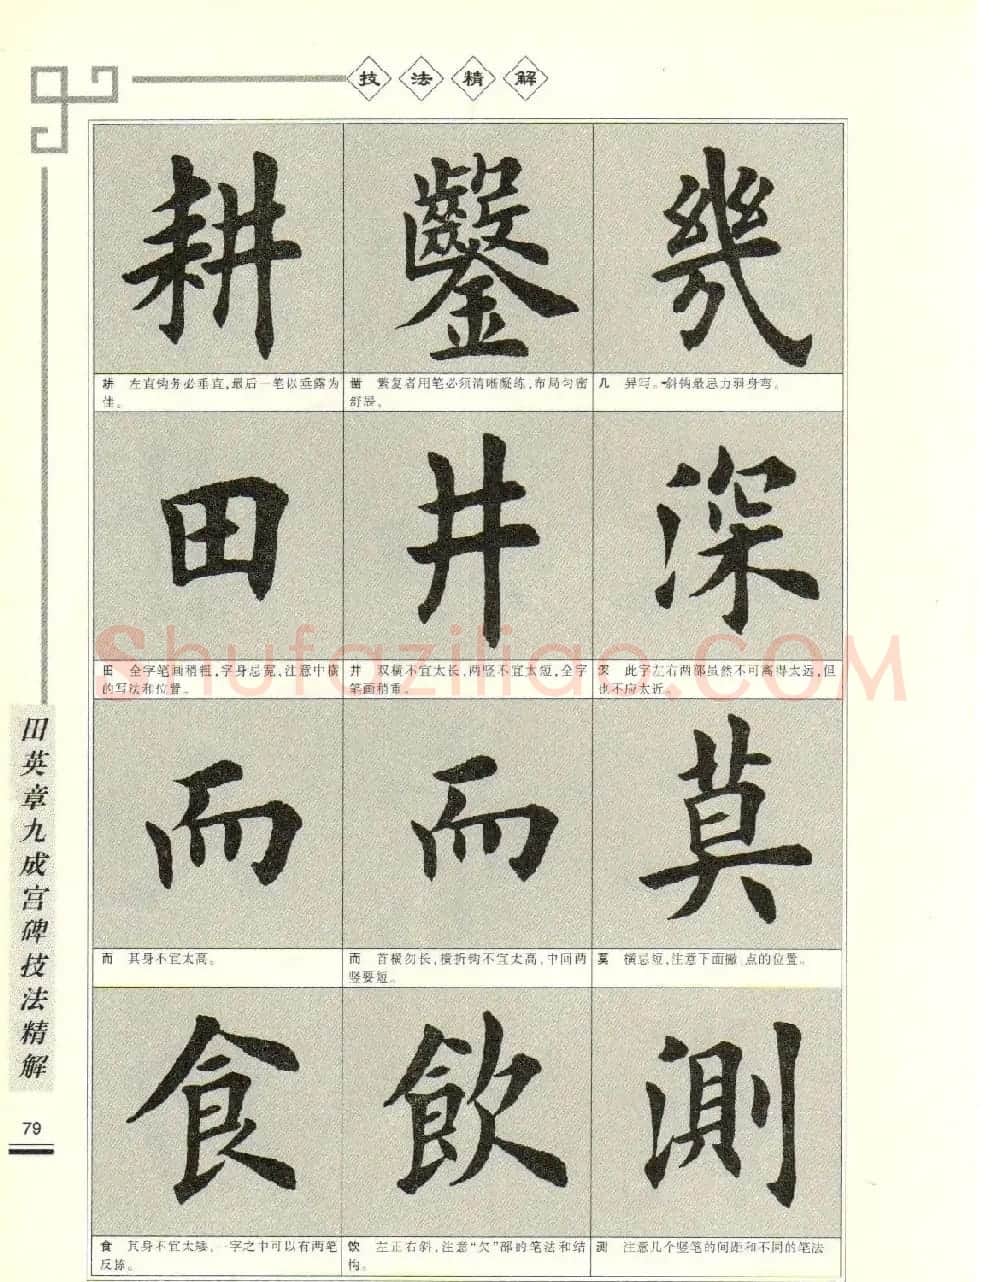 技法精解
耕 鑿 幾
耕 左直钩务必垂直,最后一笔以垂露为
佳。
凿 繁复者用笔必须清晰凝练,布局匀密
舒展。
几 异写。斜钩最忌力弱身弯。
田 井 深
田 全字笔画稍粗,字身忌宽,注意中横
的写法和位置。
井 双横不宜太长,两竖不宜太短,全字
笔画稍重。
深 此字左右两部虽然不可离得太远,但
也不应太近。
而 而 莫
而 其身不宜太高。
而 首横勿长,横折钩不宜太高,中间两
竖要短。
莫 横忌短,注意下面撇 点的位置。
食 飲 測
食 其身不宜太矮,一字之中可以有两笔
反捺。
饮 左正右斜,注意“欠”部的笔法和结
构。
测 注意几个竖笔的间距和不同的笔法
田英章九成宫碑技法精解
79
Shufaziliao.COM